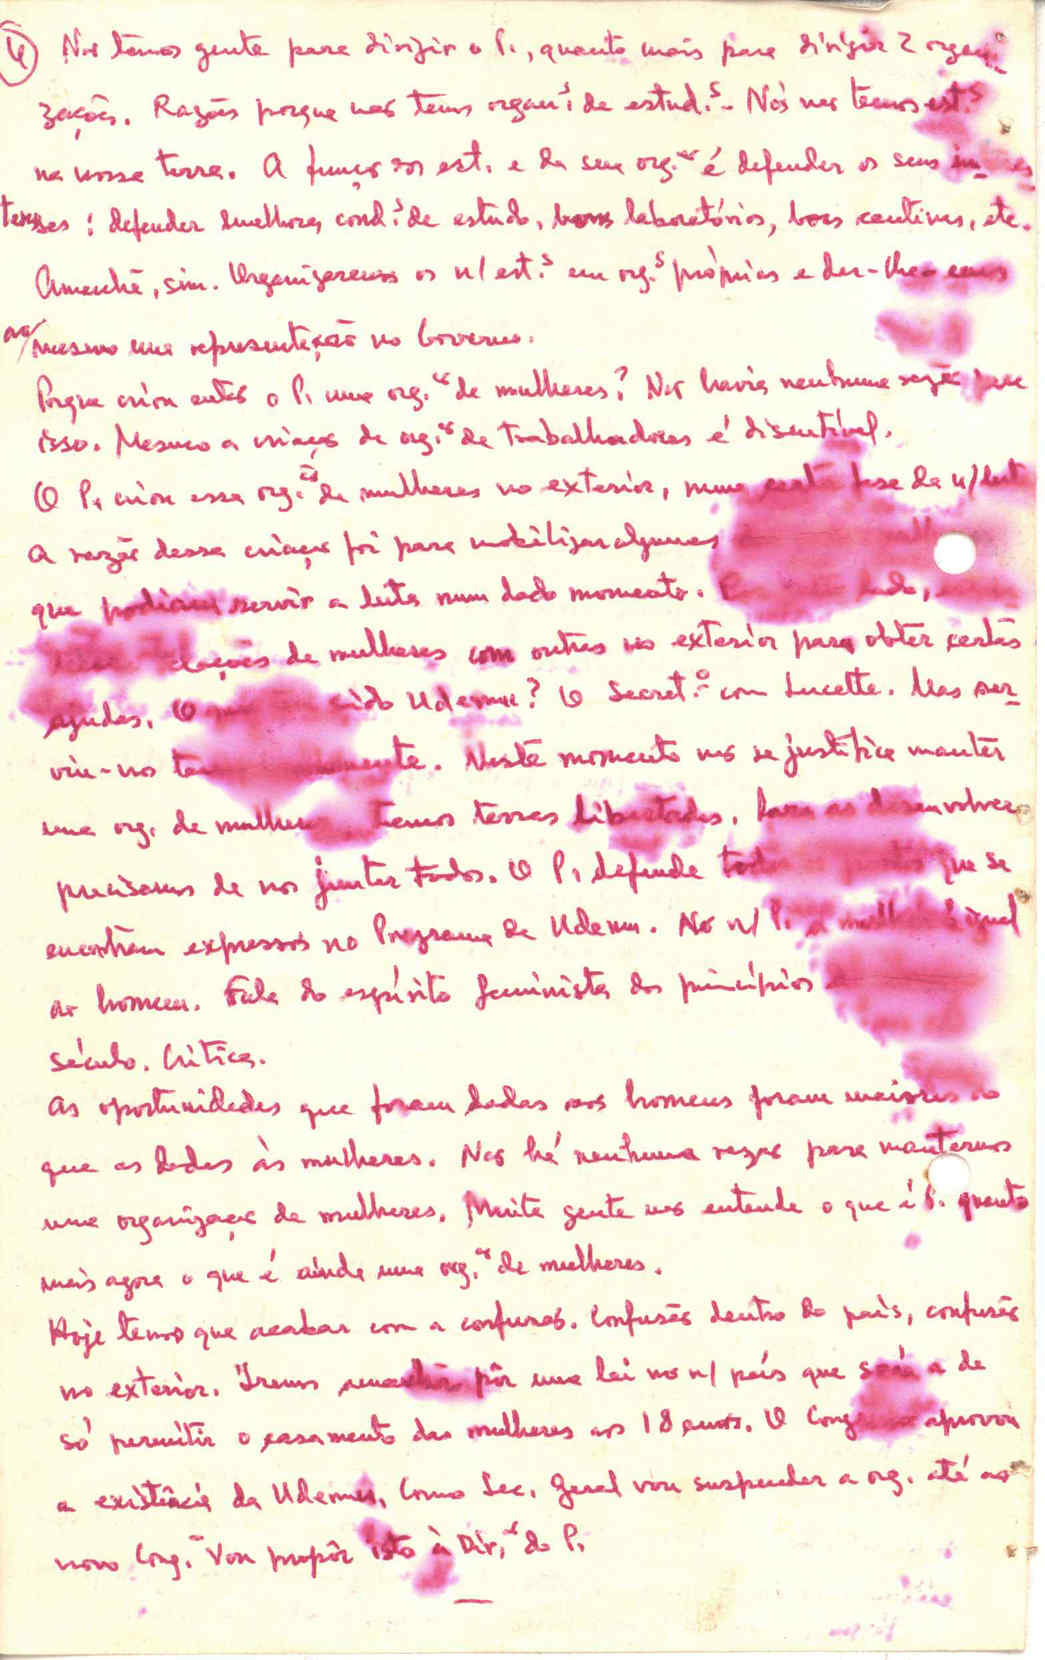 4 Não temos gente para dirigir o P., quanto mais para dirigir 2 organi-
zações. Razões porque não temos organ.s de estud.s - Nós não temos est.s
na nossa terra. A função dos est. e da sua org.ão é defender os seus in-
teresses: defender melhores cond.s de estudo, bons laboratórios, boas cantinas, etc.
Amanhã, sim. Organizaremos os n/ est.s em org.s próprias e dar-lhes-emos
mesmo uma representação no Governo.
Porque criou então o P. uma org.ão de mulheres? Não havia nenhuma razão para
isso. Mesmo a criação de org.ão de trabalhadores é discutível.
O P. criou essa org.ão de mulheres no exterior, numa certa fase da n/ luta
A razão dessa criação foi para mobilizar algumas
que podiam servir a luta num dado momento. lado,
de mulheres com outras no exterior para obter certas
ajudas. O sido Udemu? O Secret.o com Lucette. Mas ser-
viu-nos . Neste momento não se justifica manter
uma org. de mulheres. Temos terras libertadas. Para as desenvolver
precisamos de nos juntar todos. O P. defende todos os pontos que se
encontram expressos no Programa da Udemu. No n/ P. a mulher é igual
ao homem. Fala do espírito feminista dos princípios
século. Critica.
As oportunidades que foram dadas aos homens foram maiores do
que as dadas às mulheres. Não há nenhuma razão para mantermos
uma organização de mulheres. Muita gente não entende o que é P. quanto
mais agora o que é ainda uma org.ão de mulheres.
Hoje temos que acabar com a confusão. Confusão dentro do país, confusão
no exterior. Iremos amanhã pôr uma lei no n/ país que será a de
só permitir o casamento das mulheres aos 18 anos. O Congresso aprovou
a existência da Udemu. Como Sec. Geral vou suspender a org. até ao
novo Cong. Vou propôr isto à Dir.ão do P.